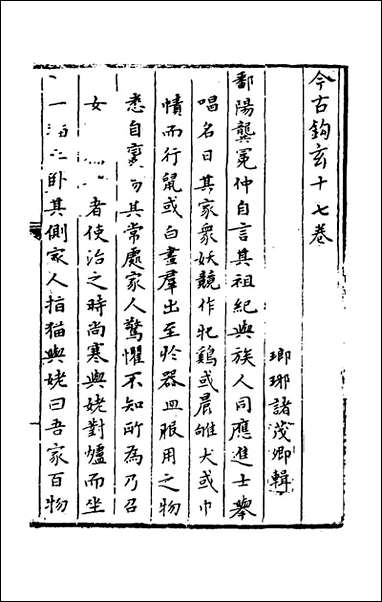 今古鈎玄十七卷
瑯琊諸茂卿輯
鄱陽龔冕仲自言其祖紀與族人同應進士舉
唱名日其家衆妖競作牝鷄或晨雊犬或巾
幘而行鼠或白晝羣出至於器皿服用之物
悉自其常處家人驚懼不知所為乃召
女者使治之時尚寒與姥對爐而坐
一卧其側家人指猫與姥曰吾家百物